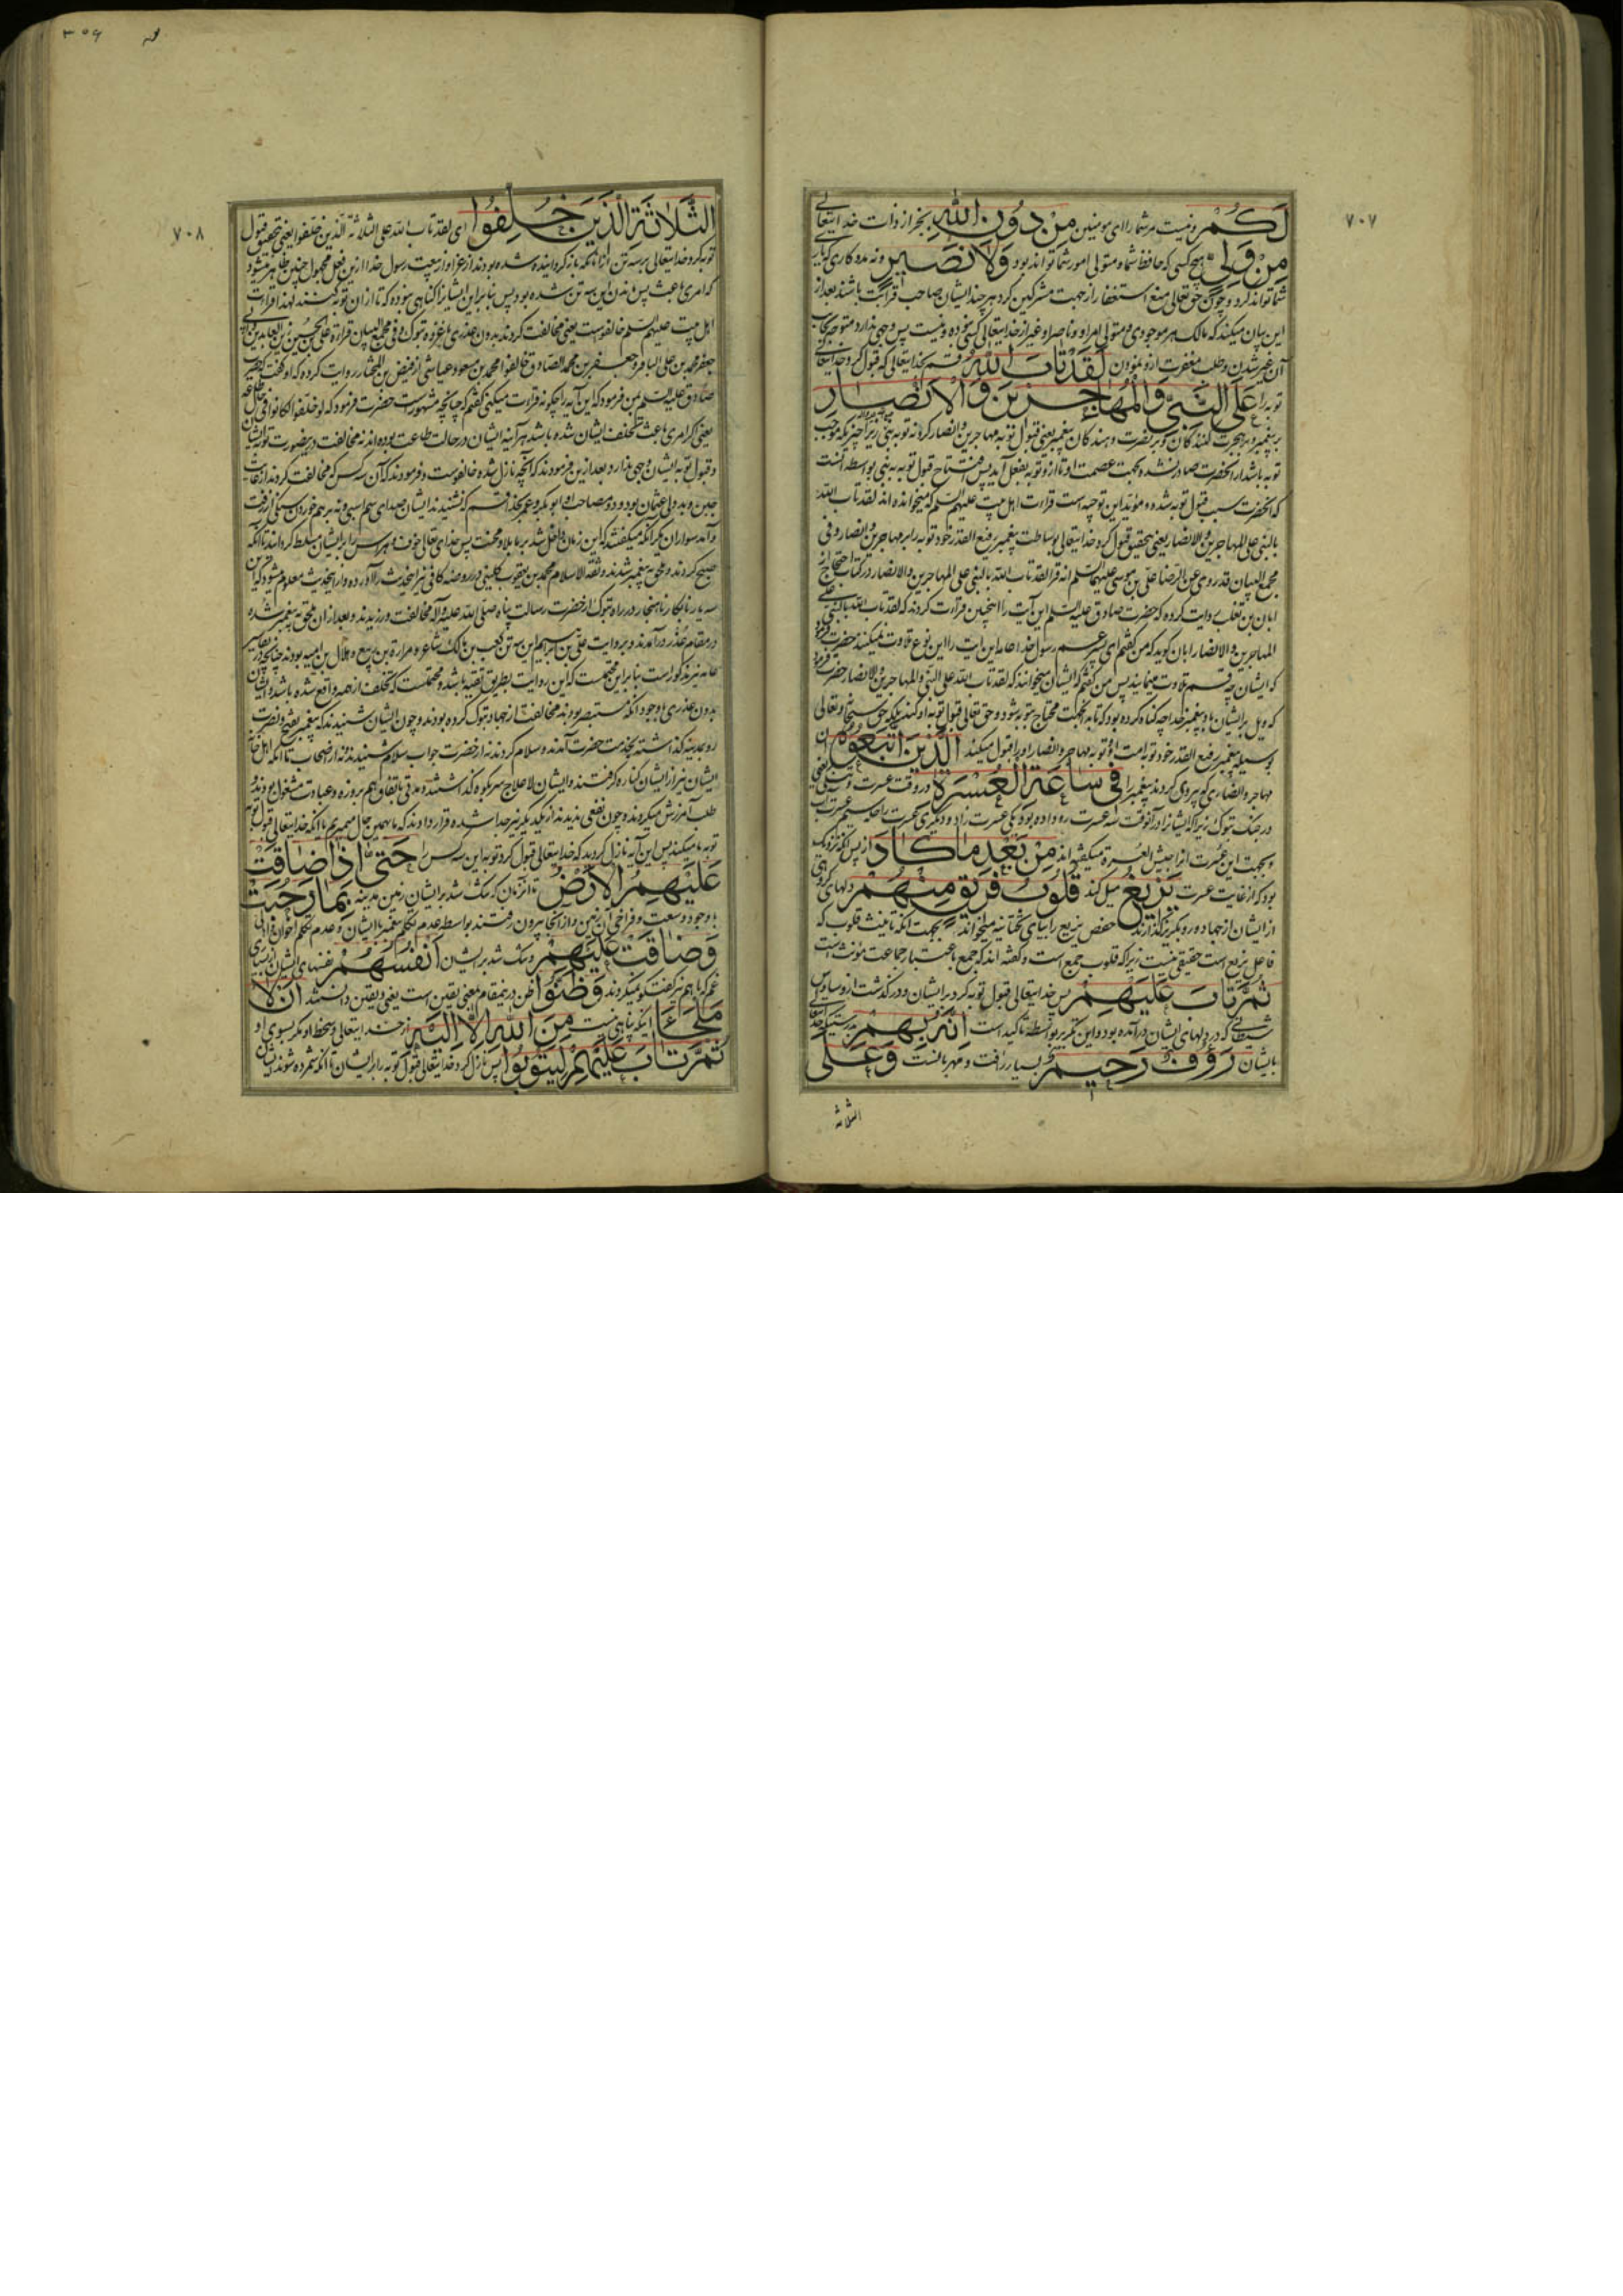 ٧٠٧
لَكُمْ و نیست مر شما را ای مومنین مِنْ دُونِ اللهِ بجز از ذات خدایتعالی
مِنْ وَلِيٍّ هیچ کسی که حافظ شما و متولی امور شما تواند بود وَلَا نَصِيرٍ و نه مددکاری که یاری
شما تواند کرد و چون حق تعالی منع استغفار از جهت مشرکین کرد هر چند ایشان صاحب قرابت باشند بعد از
این بیان میکند که مالک هر موجودی و متولی امر او و ناصر او غیر از خدایتعالی کسی نبوده و نیست پس وجهی ندارد متوجه بجانب
آن غیر شدن و طلب مغفرت از او نمودن لَقَدْ تَابَ اللهُ قسم بخدایتعالی که قبول کرد خدایتعالی
توبه را عَلَى النَّبِيِّ وَالْمُهَاجِرِينَ وَالْأَنْصَارِ
بر پیغمبر و بر هجرت کنندگان و بر نصرت دهندگان پیغمبر یعنی قبول توبه مهاجرین و انصار کرد نه توبه نبی زیرا چیزیکه موجب
توبه باشد از آنحضرت صادر نشده بجهت عصمت او تا از او توبه بفعل آید پس افتتاح قبول توبه به نبی بواسطه آنست
که آنحضرت سبب قبول توبه شده و مؤید این توجیه است قراءت اهل بیت علیهم السلم که میخوانده اند لقد تاب الله
بالنبی علی المهاجرین و الانصار یعنی بتحقیق قبول کرد خدایتعالی بوساطت پیغمبر رفیع القدر خود توبه را بر مهاجرین و انصار و فی
مجمع البیان قد روی عن الرضا علی بن موسی علیهما السلم انه قرأ لقد تاب الله بالنبی علی المهاجرین و الانصار و در کتاب احتجاج از
ابان بن تغلب روایت کرده که حضرت صادق علیه السلم این آیت را اینچنین قراءت کردند که لقد تاب الله بالنبی علی
المهاجرین و الانصار ابان گوید که من گفتم ای پسر عم رسول خدا عامه این آیت را این نوع تلاوت نمیکنند حضرت فرمود
که ایشان چه قسم تلاوت مینمایند پس من گفتم که ایشان میخوانند که لقد تاب الله علی النبی و المهاجرین و الانصار حضرت فرمود
که ویل بر ایشان باد پیغمبر خدا چه گناه کرده بود که تا به آنجهت محتاج بتوبه شود و حق تعالی قبول توبه او کند بلکه حق سبحانه و تعالی
بوسیله پیغمبر رفیع القدر خود توبه امت او و توبه مهاجر و انصار او را قبول میکند الَّذِينَ اتَّبَعُوهُ آن
مهاجر و انصاری که پیروی کردند پیغمبر را فِي سَاعَةِ الْعُسْرَةِ در وقت عسرت
در جنگ تبوک زیرا که ایشانرا در آنوقت سه عسرت رو داده بود یکی عسرت زاد و دیگری عسرت راحله سیم عسرت آب
و بجهت این عسرت آنرا جیش العسره میگفته اند مِنْ بَعْدِ مَا كَادَ از پس آنکه نزدیک
بود که از غایت عسرت يَزِيغُ میل کند قُلُوبُ فَرِيقٍ مِنْهُمْ دلهای گروهی
از ایشان از جهاد و رو بگریز گذارند حفص یزیغ را بیای تحتانیه میخواند بجهت آنکه تانیث قلوب که
فاعل یزیغ است حقیقی نیست زیرا که قلوب جمع است و گفته اند که جمع باعتبار جماعت مونث است
ثُمَّ تَابَ عَلَيْهِمْ پس خدایتعالی قبول توبه کرد بر ایشان و درگذشت از وساوس
شیطانی که در دلهای ایشان درآمده بود و این تکریر بواسطه تاکید است إِنَّهُ بِهِمْ بدرستیکه خدایتعالی
بایشان رَؤُوفٌ رَحِيمٌ بسیار رافت و مهربانست وَعَلَى
الثلاثة
٣٥٤
٧٠٨
الثَّلَاثَةِ الَّذِينَ خُلِّفُوا ای لقد تاب الله علی الثلاثة الذین خلفوا یعنی بتحقیق قبول
توبه کرد خدایتعالی بر سه تن از آنانکه بازگردانیده شده بودند از غزا و از معیت رسول خدا و ازین فعل مجهول چنین ظاهر میشود
که امری باعث پس ماندن این سه تن شده بود پس بنابراین ایشانرا گناهی نبوده که تا از آن توبه کنند لهذا قراءت
اهل بیت علیهم السلم خالفوا ست یعنی مخالفت کردند بدون عذری با غزوه تبوک و فی مجمع البیان قراءة علی بن الحسین زین العابدین و ابی
جعفر محمد بن علی الباقر و جعفر بن محمد الصادق خالفوا و محمد بن مسعود عیاشی از فیض بن المختار روایت کرده که او گفت حضرت
صادق علیه السلم بمن فرمود که این آیه را چگونه قراءت میکنی گفتم که چنانچه مشهورست حضرت فرمود که لو خلفوا لکانوا فی حال طاعة
یعنی اگر امری باعث تخلف ایشان شده باشد هر آینه ایشان در حالت طاعت بوده اند نه مخالفت و درینصورت توبه ایشان
و قبول توبه ایشان وجهی ندارد و بعد ازین فرمودند که آنچه نازل شده خالفوا ست و فرمودند که آن سه کس که مخالفت کردند
عثمان بود و دو مصاحب او ابوبکر و عمر بخدا قسم که نشنیدند ایشان صدای سم اسبی و نه بر هم خوردن سنگی از رفت
و آمد سواران مگر آنکه میگفتند که این زمان داخل شد بر ما بلا و محنت پس خدای تعالی خوف و هراس را بر ایشان مسلط گردانید تا آنکه
صبح کردند و ملحق به پیغمبر شدند و ثقة الاسلام محمد بن یعقوب کلینی در روضه کافی نیز اینحدیث را آورده و از اینحدیث معلوم میشود که این
سه یار نابکار ناهنجار در راه تبوک از حضرت رسالت پناه صلی الله علیه و آله مخالفت ورزیدند و بعد از آن ملحق به پیغمبر شده
در مقام عذر درآمدند و بروایت علی بن ابراهیم این سه تن کعب بن مالک شاعر و مرارة بن ربیع و هلال بن امیه بودند چنانچه در تفاسیر
عامه نیز مذکور است بنابراین محتملست که این روایت بطریق تقیه باشد و محتملست که تخلف از همه واقع شده باشد و ایشان
بدون عذری باوجود آنکه مستبصر بودند مخالفت از جهاد تبوک کرده بودند و چون ایشان شنیدند که پیغمبر بفتح و نصرت
رو بمدینه گذاشته بخدمت حضرت آمدند و سلام کردند نه از حضرت جواب سلام شنیدند و نه از اصحاب تا آنکه اهل خانه
ایشان نیز از ایشان کناره گرفتند و ایشان لاعلاج سر بکوه گذاشتند و مدتی باتفاق هم بروزه و عبادت مشغول بودند و
طلب آمرزش میکردند و چون نفعی ندیدند از یکدیگر نیز جدا شده قرار دادند که ما بهمین حال میمیریم یا آنکه خدایتعالی قبول توبه
توبه ما میکند پس این آیه نازل گردید که خدایتعالی قبول کرد توبه این سه کس را حَتَّى إِذَا ضَاقَتْ
عَلَيْهِمُ الْأَرْضُ تا آنزمان که تنگ شد بر ایشان زمین مدینه بِمَا رَحُبَتْ
باوجود وسعت و فراخی آن زمین و از آنجا بیرون رفتند بواسطه عدم تکلم پیغمبر با ایشان و عدم تکلم اخوان و اهالی
وَضَاقَتْ عَلَيْهِمْ و تنگ شد بر ایشان أَنْفُسُهُمْ نفسهای ایشان از بسیاری
غم که با هم نیز گفتگو نمیکردند وَظَنُّوا ظن درینمقام بمعنی یقین است یعنی و یقین دانستند أَنْ لَا
مَلْجَأَ اینکه پناهی نیست مِنَ اللهِ إِلَّا إِلَيْهِ از خدایتعالی و سخط او مگر بسوی او
ثُمَّ تَابَ عَلَيْهِمْ لِيَتُوبُوا پس نازل کرد خدایتعالی قبول توبه را بر ایشان تا آنکه شمرده شوند ایشان